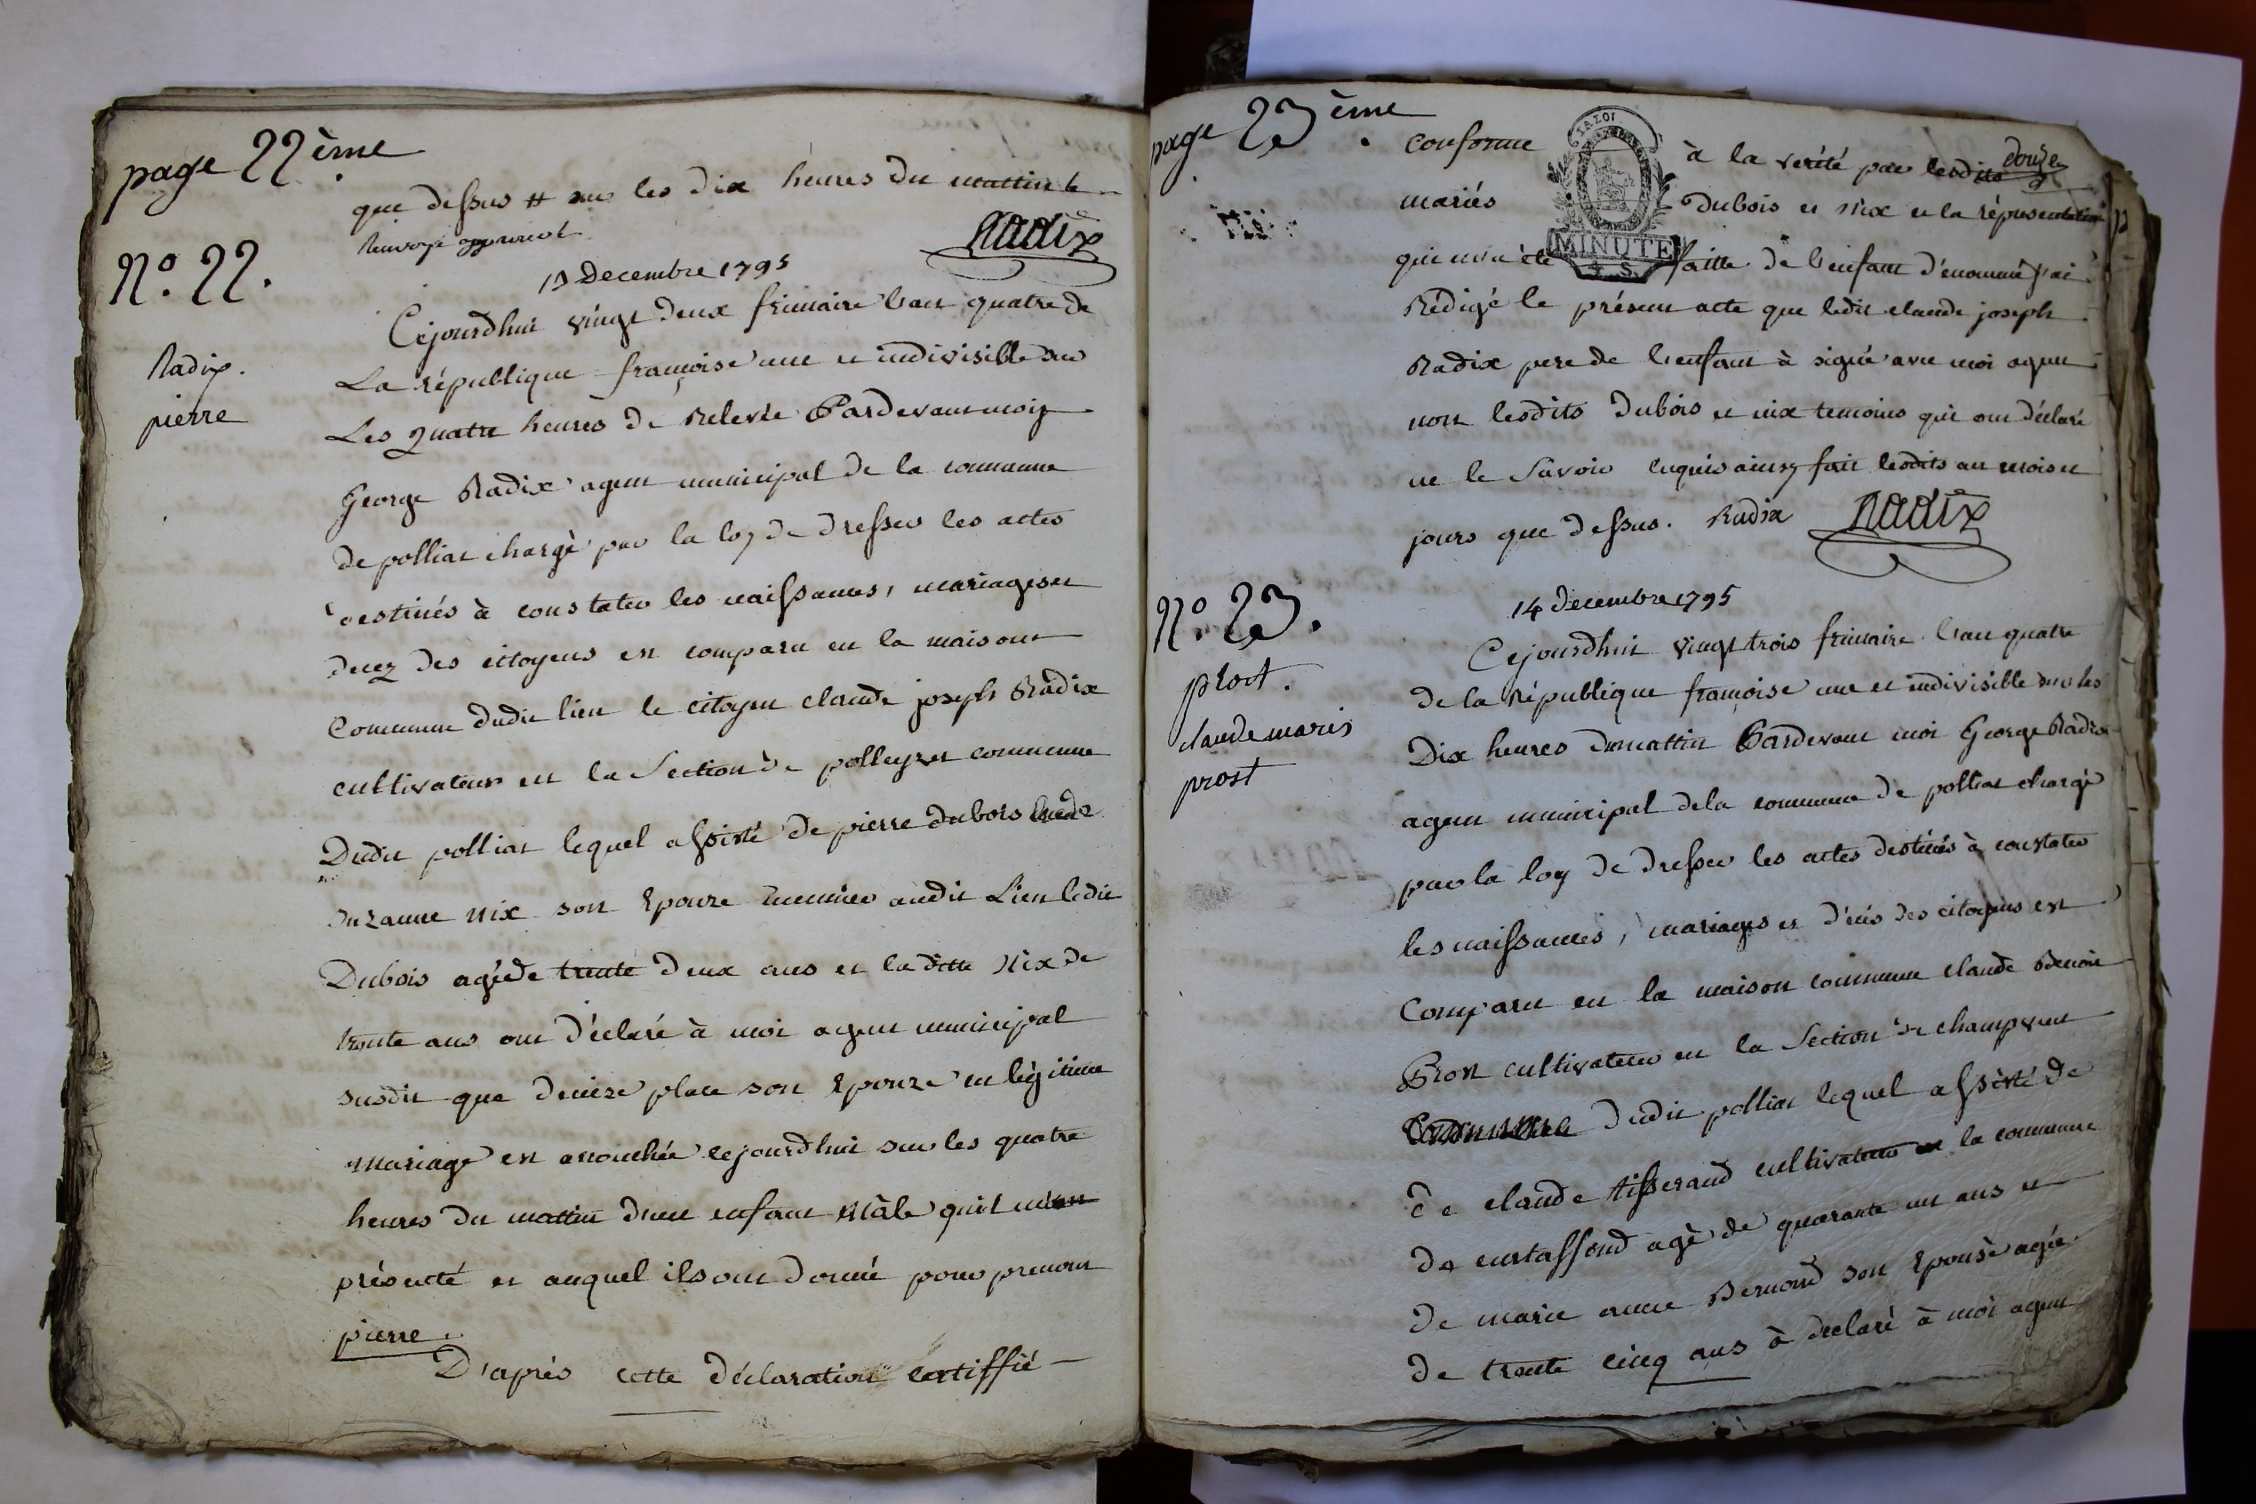 page 22ème
que dessus # sur les dix heures du mattin &
Renvoye approuvé
Radix
N.º 22.
13 Decembre 1795
Radix.
pierre
Cejourdhui vingt deux frimaire l'an quatre de
La république françoise une et indivisible sur
Les quatre heures de Relevée Pardevant moiy
George Radix agent municipal de la commune
de polliat chargé par la loy de dresser les actes
destinés à constater les naissances, mariages et
decez des citoyens est comparu en la maison
Commune dudit lieu le citoyen claude joseph Radix
cultivateur en la Section de polleyzet commune
Dudit polliat lequel assisté de pierre dubois &de
Suzanne nix son Epouze meunier audit Lieu ledit
Dubois agé de trente deux ans et la ditte Nix de
trente ans ont déclaré à moi agent municipal
susdit que deniize place son Epouze en légitime
mariage est accouchée cejourdhui sur les quatre
heures du mattin d'un enfant Mâle qu'il m'on
présenté et auquel ils ont donné pour prenom
pierre.
D'après cette déclaration certiffié
page 23ème
conforme à la verité par lesdits
douze
mariés Dubois et Nix et la répresentation
MINUTE
4 S.
qui m'a été faitte de l'enfant d'enommé j'ai
Rédigé le présent acte que ledit claude joseph
Radix pere de l'enfant à signé avec moi agent
non lesdits Dubois et nix temoins qui ont déclaré
ne le Savoir enquis ainsy fait lesdits an mois et
jours que dessus. Radix Radix
N.º 23.
14 decembre 1795
prost.
claude marie
prost
Cejourdhui vingt trois frimaire l'an quatre
de la République françoise une et indivisible sur les
Dix heures du mattin Pardevant moi George Radix
agent municipal de la commune de polliat chargé
par la loy de dresser les actes destinés à constater
les naissances, mariages et décés des citoyens est
Comparu en la maison commune claude Benoit
Prost cultivateur en la Section de champvent
Commune dudit polliat lequel assisté de
de claude tisserand cultivateur en la commune
de curtaffond agé de quarante un ans et
de marie anne Bernard son Epouse agée
de trente cinq ans à declaré à moi agent